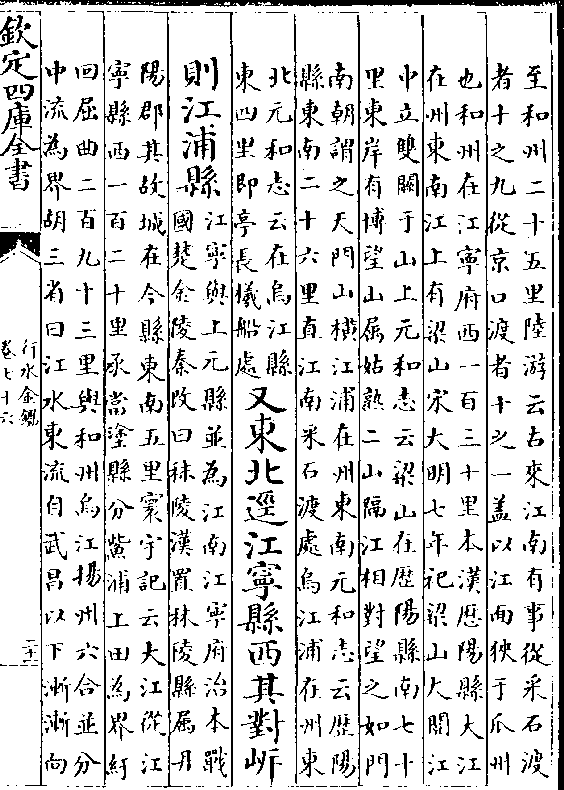 至和州二十五里陸游云古來江南有事從采石渡
者十之九從京口渡者十之一盖以江面狹于瓜州
也和州在江寧府西一百三十里本漢歴陽縣大江
在州東南江上有梁山宋大明七年祀梁山大閱江
中立雙闕于山上元和志云梁山在歴陽縣南七十
里東岸有博望山屬姑熟二山隔江相對望之如門
南朝謂之天門山横江浦在州東南元和志云歴陽
縣東南二十六里直江南采石渡處烏江浦在州東
北元和志云在烏江縣
東四里即亭長檥船處
又東北逕江寧縣西其對㟁
則江浦縣
江寧與上元縣並為江南江寧府治本戰
國楚金陵秦改曰秣陵漢置秣陵縣屬丹
陽郡其故城在今縣東南五里寰宇記云大江從江
寧縣西一百二十里承當塗縣分鮆浦上田為界紆
回屈曲二百九十三里與和州烏江揚州六合並分
中流為界胡三省曰江水東流自武昌以下漸漸向
欽定四庫全書
行水金鑑
卷七十六